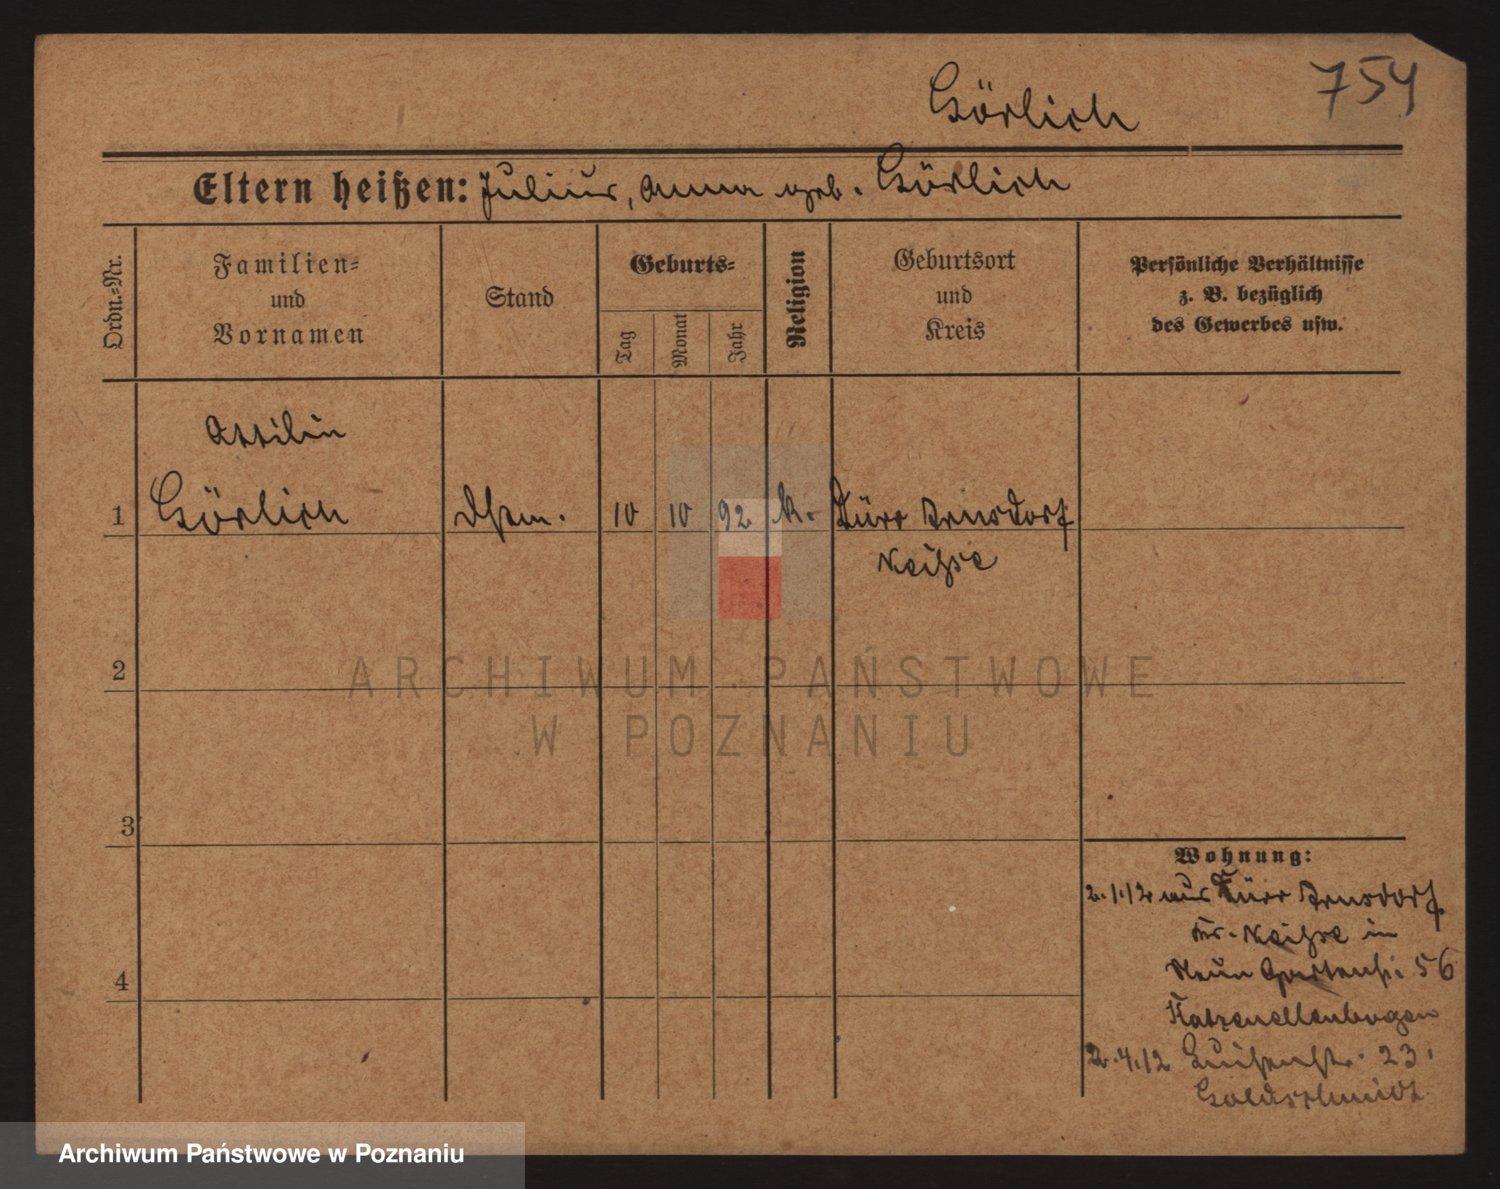 754
Görlich
Eltern heißen: Julius, Anna geb. Görlich
Ordn.-Nr.
Familien-
und
Vornamen
Stand
Geburts-
Tag
Monat
Jahr
Religion
Geburtsort
und
Kreis
Persönliche Verhältnisse
z. B. bezüglich
des Gewerbes usw.
Görlich
1
10 10 92 k. Dürr Arnsdorf
Neiße
2
3
4
Wohnung:
2.1.12 aus Dürr Arnsdorf
Kr. Neiße in
Neue Gartenstr. 56
Katzenellenbogen
2.4.12 Luisenstr. 23.
Goldschmidt
ARCHIWUM PAŃSTWOWE
W POZNANIU
Archiwum Państwowe w Poznaniu